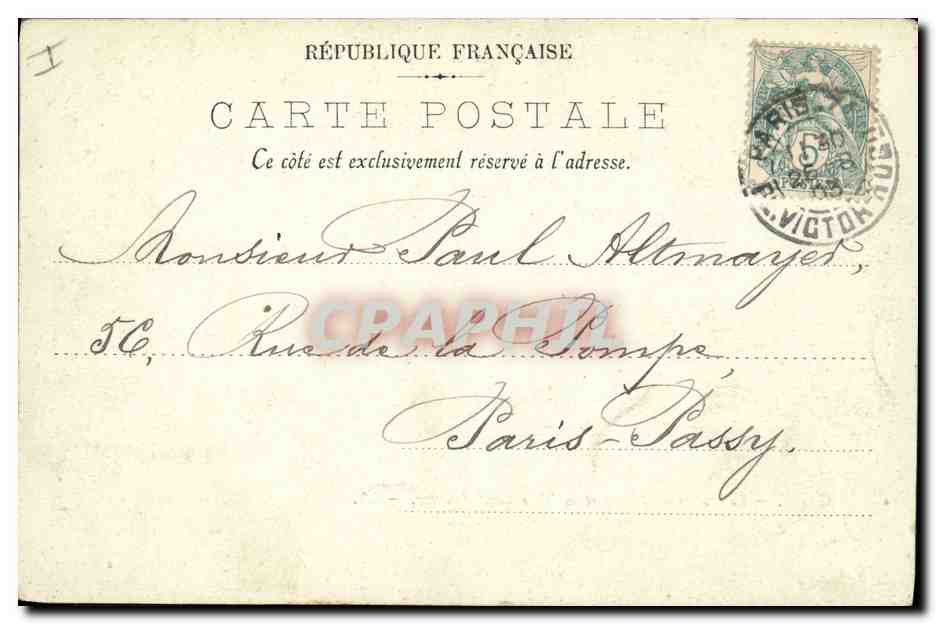 RÉPUBLIQUE FRANÇAISE
CARTE POSTALE
Ce côté est exclusivement réservé à l'adresse.
PARIS
5
VICTOR
Monsieur Paul Altmayer,
56, Rue de la Pompe,
CPAPHIL
Paris-Passy.